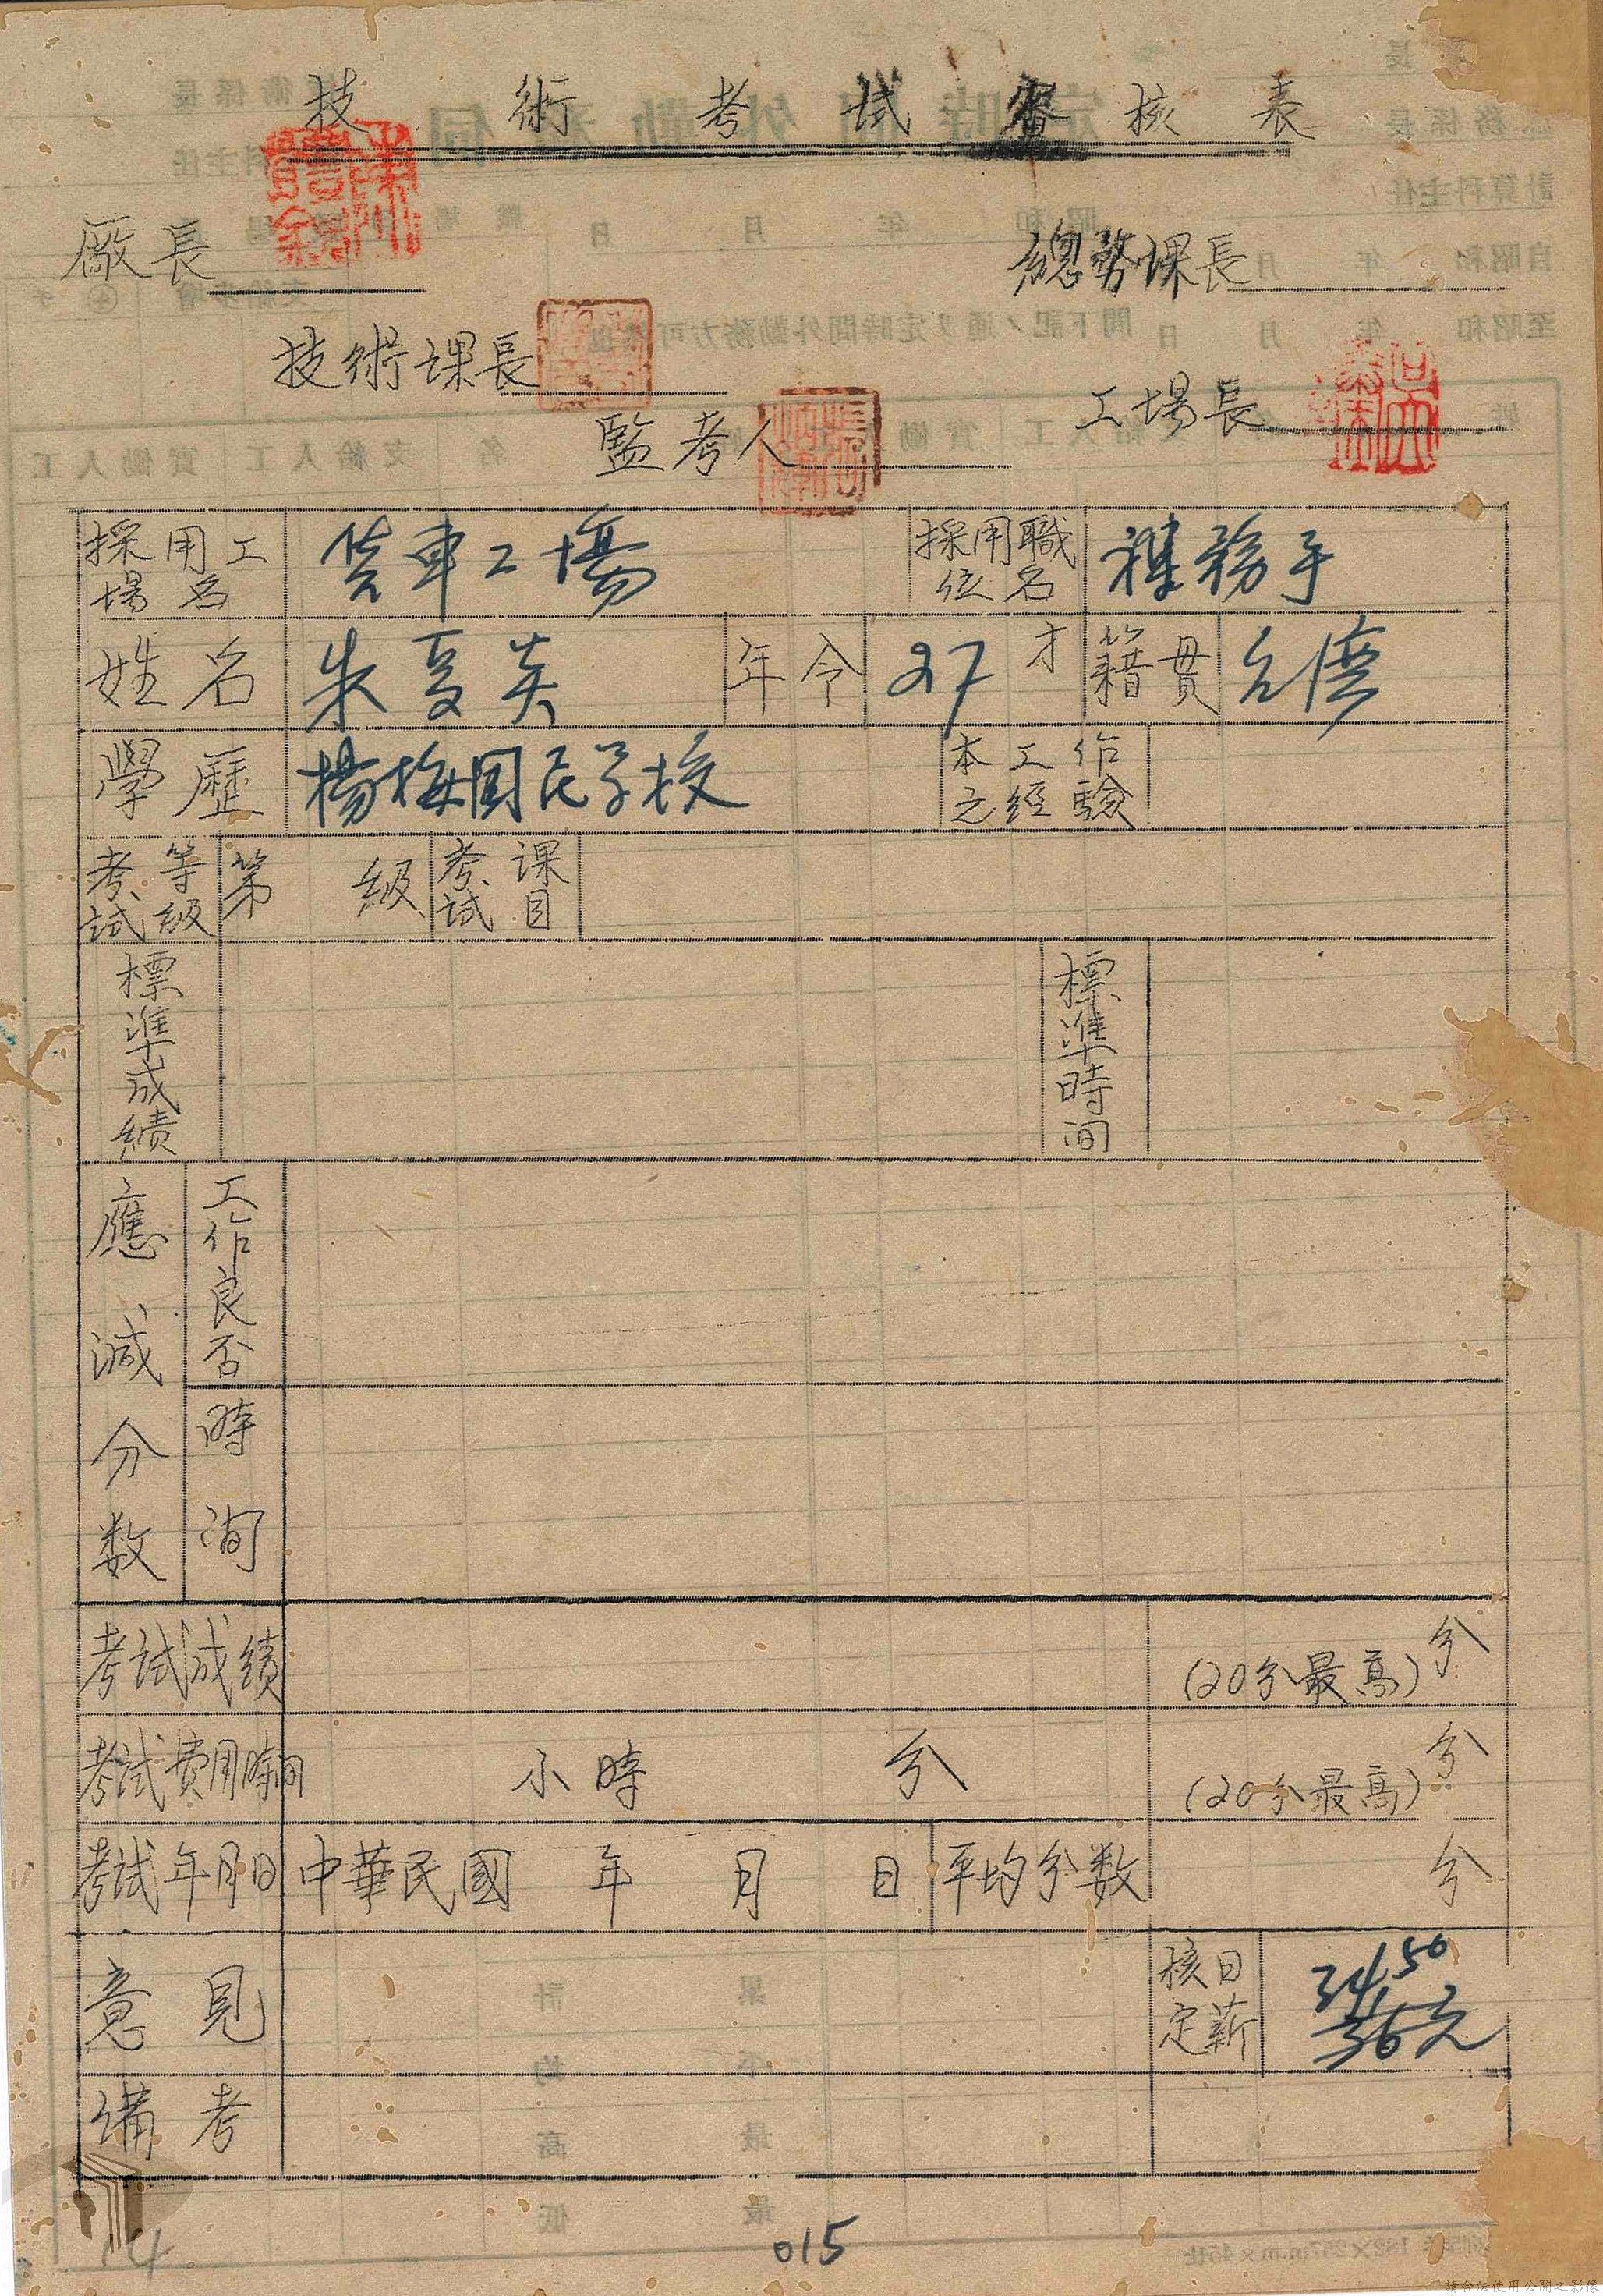 技術考試審核表
廠長
總務課長
技術課長
工場長
監考人
採用工場名 貨車工場 採用職位名 雜務手
姓名 朱夏炎 年令 27才 籍貫 台灣
學歷 楊梅國民学校 本工作之經驗
考試等級 第 級 考試課目
標準成績 標準時间
應減分数 工作良否
時间
考試成績 (20分最高) 分
考試費用時间 小時 分 (20分最高) 分
考試年月日 中華民國 年 月 日 平均分数 分
意見 核定日薪 34.50
36元
備考
015
14
請合法使用公開之影像